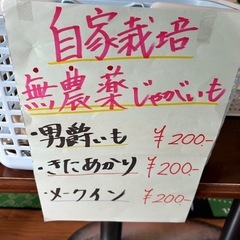 自家栽培
無農薬じゃがいも
・男爵いも ¥200-
・きたあかり ¥200-
・メークイン ¥200-